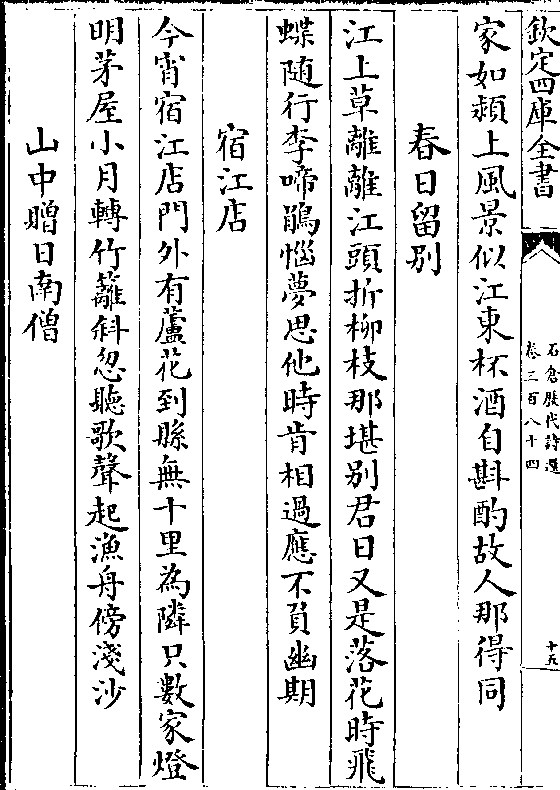 欽定四庫全書
石倉歷代詩選
卷三百八十四
十五
家如頻上風景似江東杯酒自斟酌故人那得同
春日留別
江上草離離江頭折柳枝那堪別君日又是落花時飛
蝶隨行李啼鵑惱夢思他時肯相過應不負幽期
宿江店
今宵宿江店門外有蘆花到縣無十里為隣只數家燈
明茅屋小月轉竹籬斜忽聽歌聲起漁舟傍淺沙
山中贈日南僧